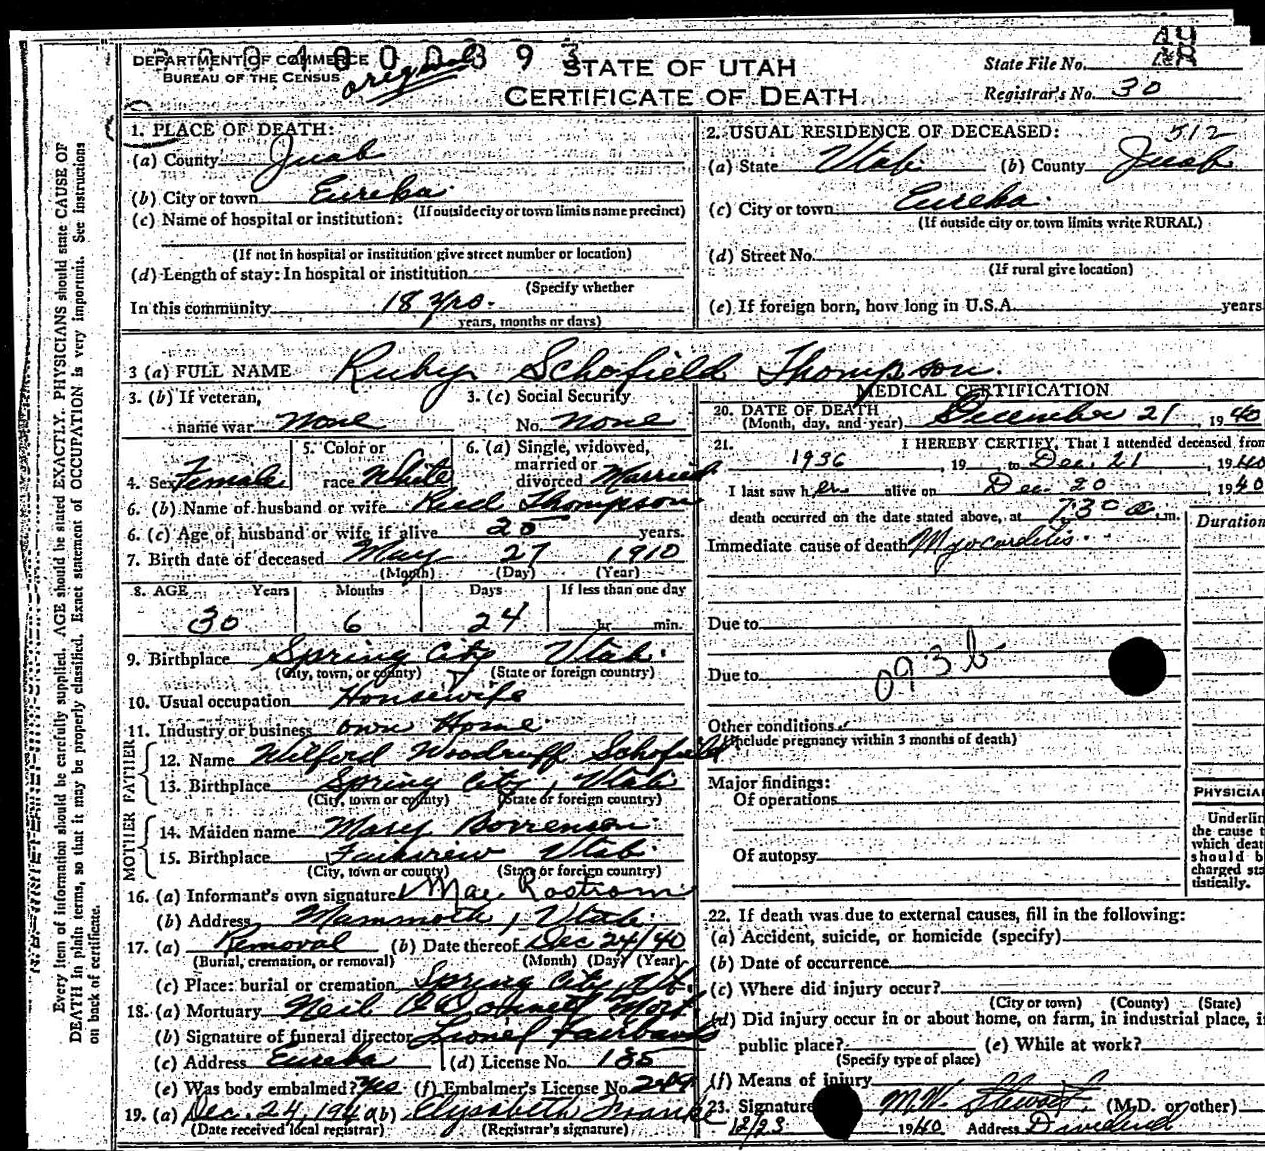 2004000393
DEPARTMENT OF COMMERCE
BUREAU OF THE CENSUS
original
STATE OF UTAH
CERTIFICATE OF DEATH
State File No.
Registrar's No. 30
1. PLACE OF DEATH:
(a) County Juab
(b) City or town Eureka
(If outside city or town limits name precinct)
(c) Name of hospital or institution:
(If not in hospital or institution give street number or location)
(d) Length of stay: In hospital or institution
(Specify whether
In this community 18 yrs.
years, months or days)
2. USUAL RESIDENCE OF DECEASED: 512
(a) State Utah (b) County Juab
(c) City or town Eureka
(If outside city or town limits write RURAL)
(d) Street No.
(If rural give location)
(e) If foreign born, how long in U.S.A. years
3 (a) FULL NAME Ruby Schofield Thompson
3. (b) If veteran, name war None
3. (c) Social Security No. None
4. Sex Female
5. Color or race White
6. (a) Single, widowed, married or divorced Married
6. (b) Name of husband or wife Reed Thompson
6. (c) Age of husband or wife if alive 25 years.
7. Birth date of deceased May 27 1910
(Month) (Day) (Year)
8. AGE Years Months Days If less than one day
30 6 24 hr. min.
9. Birthplace Spring City Utah
(City, town, or county) (State or foreign country)
10. Usual occupation Housewife
11. Industry or business own Home
FATHER
12. Name Wilford Woodruff Schofield
13. Birthplace Spring City, Utah
(City, town or county) (State or foreign country)
MOTHER
14. Maiden name Mary Borrenson
15. Birthplace Fairview Utah
(City, town or county) (State or foreign country)
16. (a) Informant's own signature Mae Rostrom
(b) Address Mammoth, Utah
17. (a) Removal (b) Date thereof Dec 24/40
(Burial, cremation, or removal) (Month) (Day) (Year)
(c) Place: burial or cremation Spring City, Ut.
18. (a) Mortuary Neil O'Donnell Mort
(b) Signature of funeral director Lionel Fairbanks
(c) Address Eureka (d) License No. 185
(e) Was body embalmed? Yes (f) Embalmer's License No.
19. (a) Dec. 24, 1940 (b) Elysabeth Franke
(Date received local registrar) (Registrar's signature)
MEDICAL CERTIFICATION
20. DATE OF DEATH December 21, 1940
(Month, day, and year)
21. I HEREBY CERTIFY, That I attended deceased from
1936, 19 to Dec. 21, 1940
I last saw her alive on Dec. 20 1940
death occurred on the date stated above, at 7:30 a. m.
Duration
Immediate cause of death Myocarditis
Due to
Due to
093b
Other conditions
(Include pregnancy within 3 months of death)
Major findings:
Of operations
Of autopsy
PHYSICIAN
Underlin
the cause t
which deat
should b
charged sta
tistically.
22. If death was due to external causes, fill in the following:
(a) Accident, suicide, or homicide (specify)
(b) Date of occurrence
(c) Where did injury occur?
(City or town) (County) (State)
(d) Did injury occur in or about home, on farm, in industrial place, i
public place? (e) While at work?
(Specify type of place)
(f) Means of injury
23. Signature M.W. Stewart (M.D. or other)
12/23 1940 Address Dividend
Every item of information should be carefully supplied. AGE should be stated EXACTLY. PHYSICIANS should state CAUSE OF
DEATH in plain terms, so that it may be properly classified. Exact statement of OCCUPATION is very important. See instructions
on back of certificate.